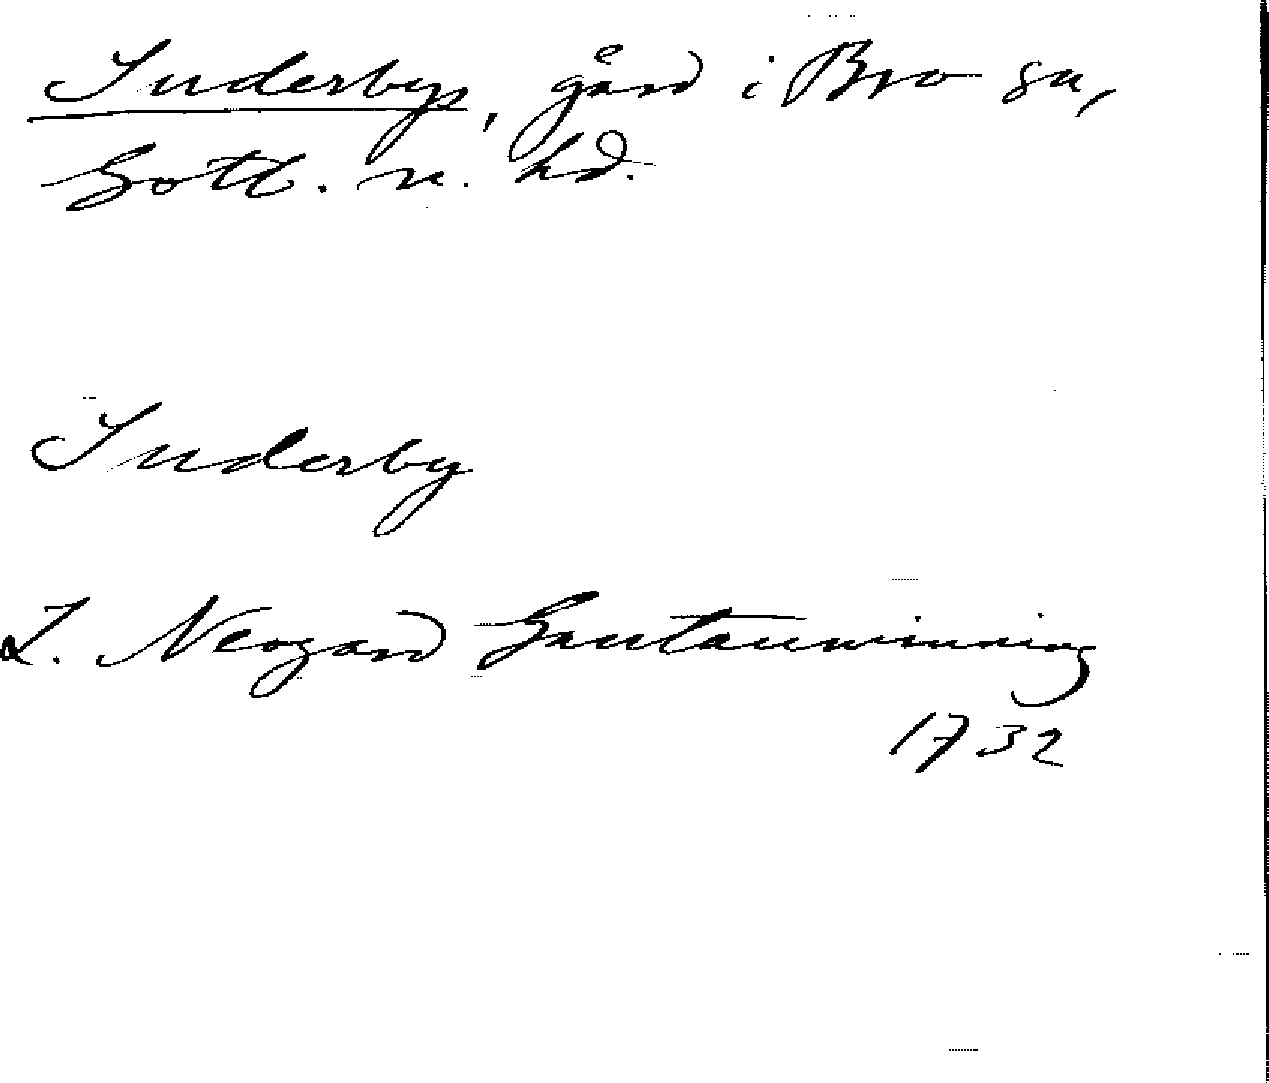 Suderbys, gård i Bro sn,
Gotl. n. hd.
Suderby
L. Neogard Gautauminning
1732